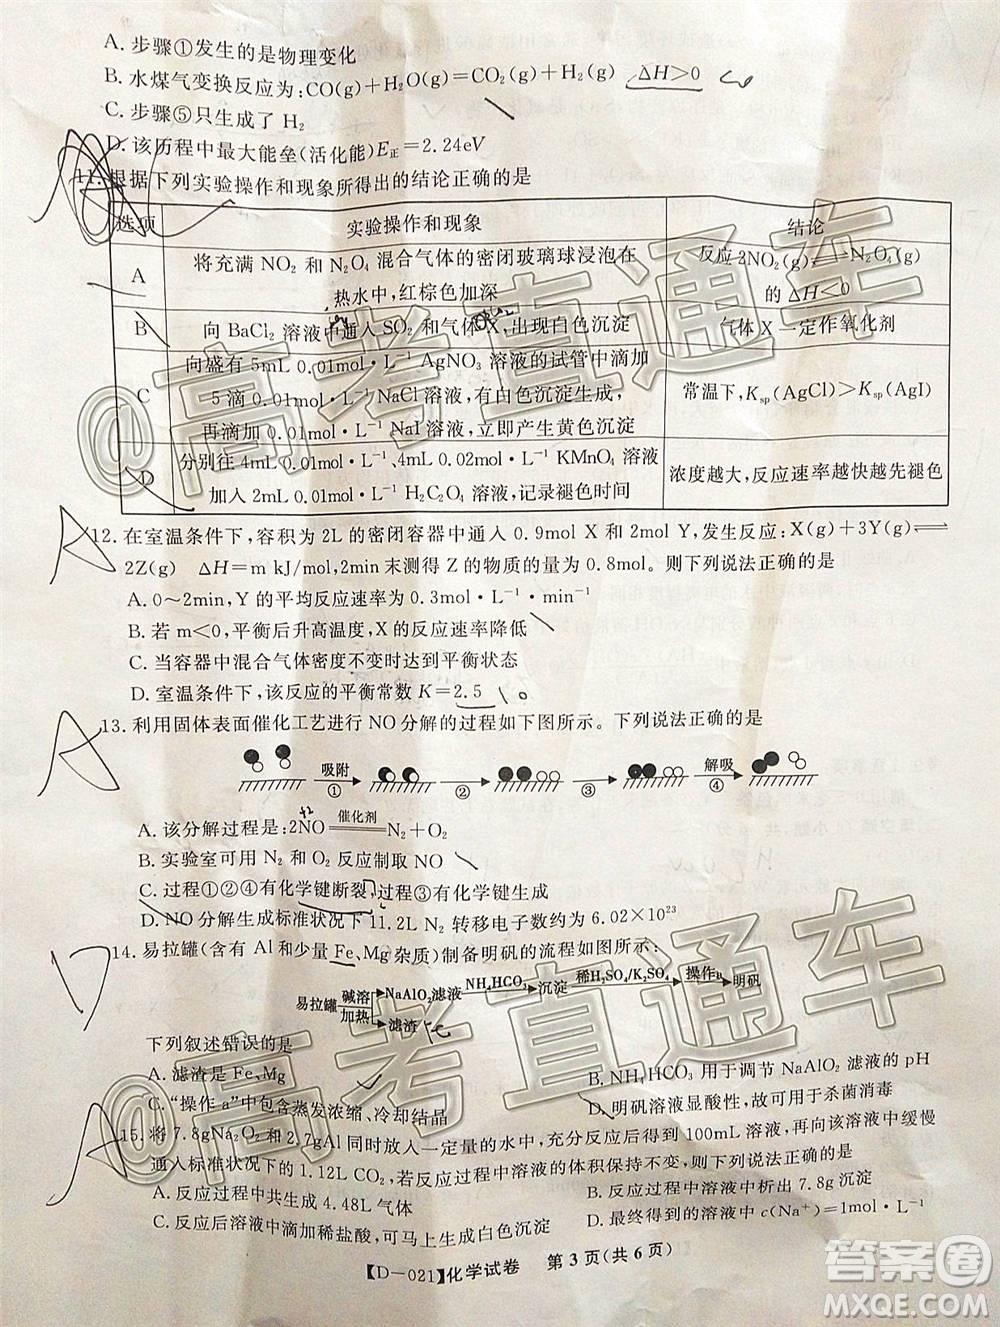 A. 步骤①发生的是物理变化
B. 水煤气变换反应为:CO(g)+H₂O(g)=CO₂(g)+H₂(g) ΔH>0
C. 步骤⑤只生成了 H₂
D. 该历程中最大能垒(活化能)E正=2.24eV
11. 根据下列实验操作和现象所得出的结论正确的是
选项 实验操作和现象 结论
A 将充满 NO₂ 和 N₂O₄ 混合气体的密闭玻璃球浸泡在热水中,红棕色加深 反应 2NO₂(g)⇌N₂O₄(g)的 ΔH<0
B 向 BaCl₂ 溶液中通入 SO₂ 和气体 X,出现白色沉淀 气体 X 一定作氧化剂
C 向盛有 5mL 0.01mol·L⁻¹ AgNO₃ 溶液的试管中滴加 5 滴 0.01mol·L⁻¹ NaCl 溶液,有白色沉淀生成,再滴加 0.01mol·L⁻¹ NaI 溶液,立即产生黄色沉淀 常温下,Ksp(AgCl)>Ksp(AgI)
D 分别往 4mL 0.01mol·L⁻¹、4mL 0.02mol·L⁻¹ KMnO₄ 溶液加入 2mL 0.01mol·L⁻¹ 溶液,记录褪色时间 浓度越大,反应速率越快越先褪色
12. 在室温条件下,容积为 2L 的密闭容器中通入 0.9mol X 和 2mol Y,发生反应:X(g)+3Y(g)⇌
2Z(g) ΔH=m kJ/mol,2min 末测得 Z 的物质的量为 0.8mol。则下列说法正确的是
A. 0～2min,Y 的平均反应速率为 0.3mol·L⁻¹·min⁻¹
B. 若 m<0,平衡后升高温度,X 的反应速率降低
C. 当容器中混合气体密度不变时达到平衡状态
D. 室温条件下,该反应的平衡常数 K=2.5
13. 利用固体表面催化工艺进行 NO 分解的过程如下图所示。下列说法正确的是
吸附 ① ② ③ 解吸 ④
A. 该分解过程是:2NO 催化剂 N₂+O₂
B. 实验室可用 N₂ 和 O₂ 反应制取 NO
C. 过程①②④有化学键断裂,过程③有化学键生成
D. NO 分解生成标准状况下 11.2L N₂ 转移电子数约为 6.02×10²³
14. 易拉罐(含有 Al 和少量 Fe、Mg 杂质)制备明矾的流程如图所示:
易拉罐 碱溶 加热 NaAlO₂滤液 NH₄HCO₃ 沉淀 稀H₂SO₄/K₂SO₄ 操作a 明矾
滤渣
下列叙述错误的是
A. 滤渣是 Fe、Mg B. NH₄HCO₃ 用于调节 NaAlO₂ 滤液的 pH
C. “操作 a”中包含蒸发浓缩、冷却结晶 D. 明矾溶液显酸性,故可用于杀菌消毒
15. 将 7.8gNa₂O₂ 和 2.7gAl 同时放入一定量的水中,充分反应后得到 100mL 溶液,再向该溶液中缓慢
通入标准状况下的 1.12L CO₂,若反应过程中溶液的体积保持不变,则下列说法正确的是
A. 反应过程中共生成 4.48L 气体 B. 反应过程中溶液中析出 7.8g 沉淀
C. 反应后溶液中滴加稀盐酸,可马上生成白色沉淀 D. 最终得到的溶液中 c(Na⁺)=1mol·L⁻¹
【D-021】化学试卷 第 3 页(共 6 页)
@高考直通车
@高考直通车
答案圈
MXQE.COM